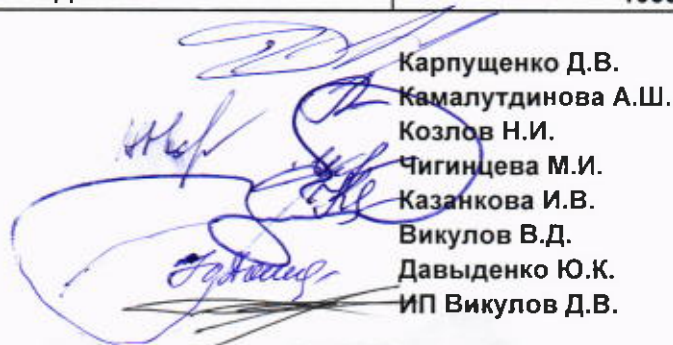 Карпущенко Д.В.
Камалутдинова А.Ш.
Козлов Н.И.
Чигинцева М.И.
Казанкова И.В.
Викулов В.Д.
Давыденко Ю.К.
ИП Викулов Д.В.